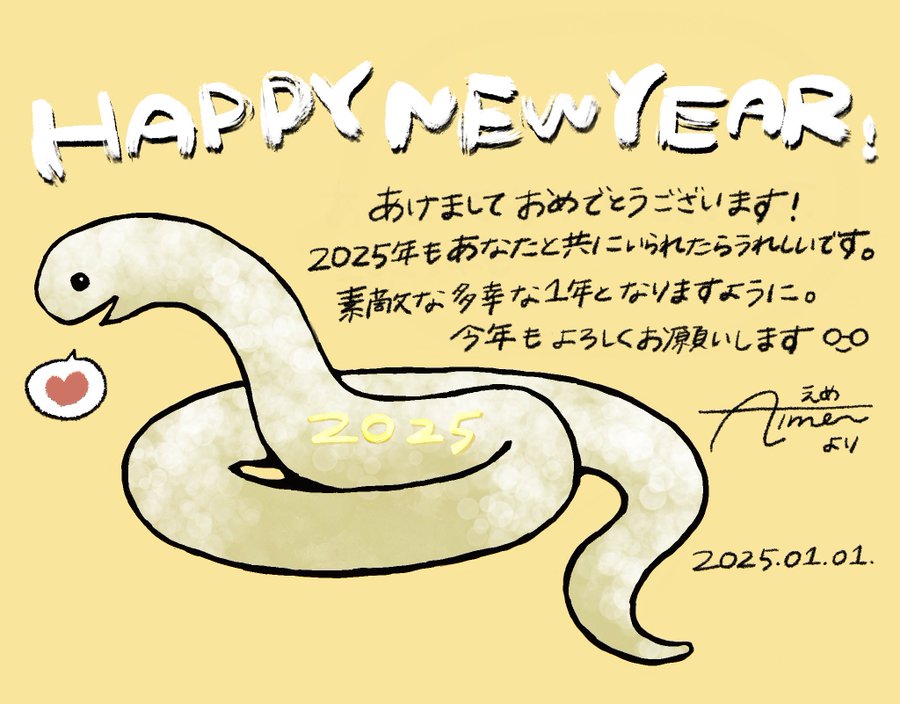 HAPPY NEW YEAR!
あけましておめでとうございます!
2025年もあなたと共にいられたらうれしいです。
素敵な多幸な1年となりますように。
今年もよろしくお願いします
2025
えめ
Aimer
より
2025.01.01.